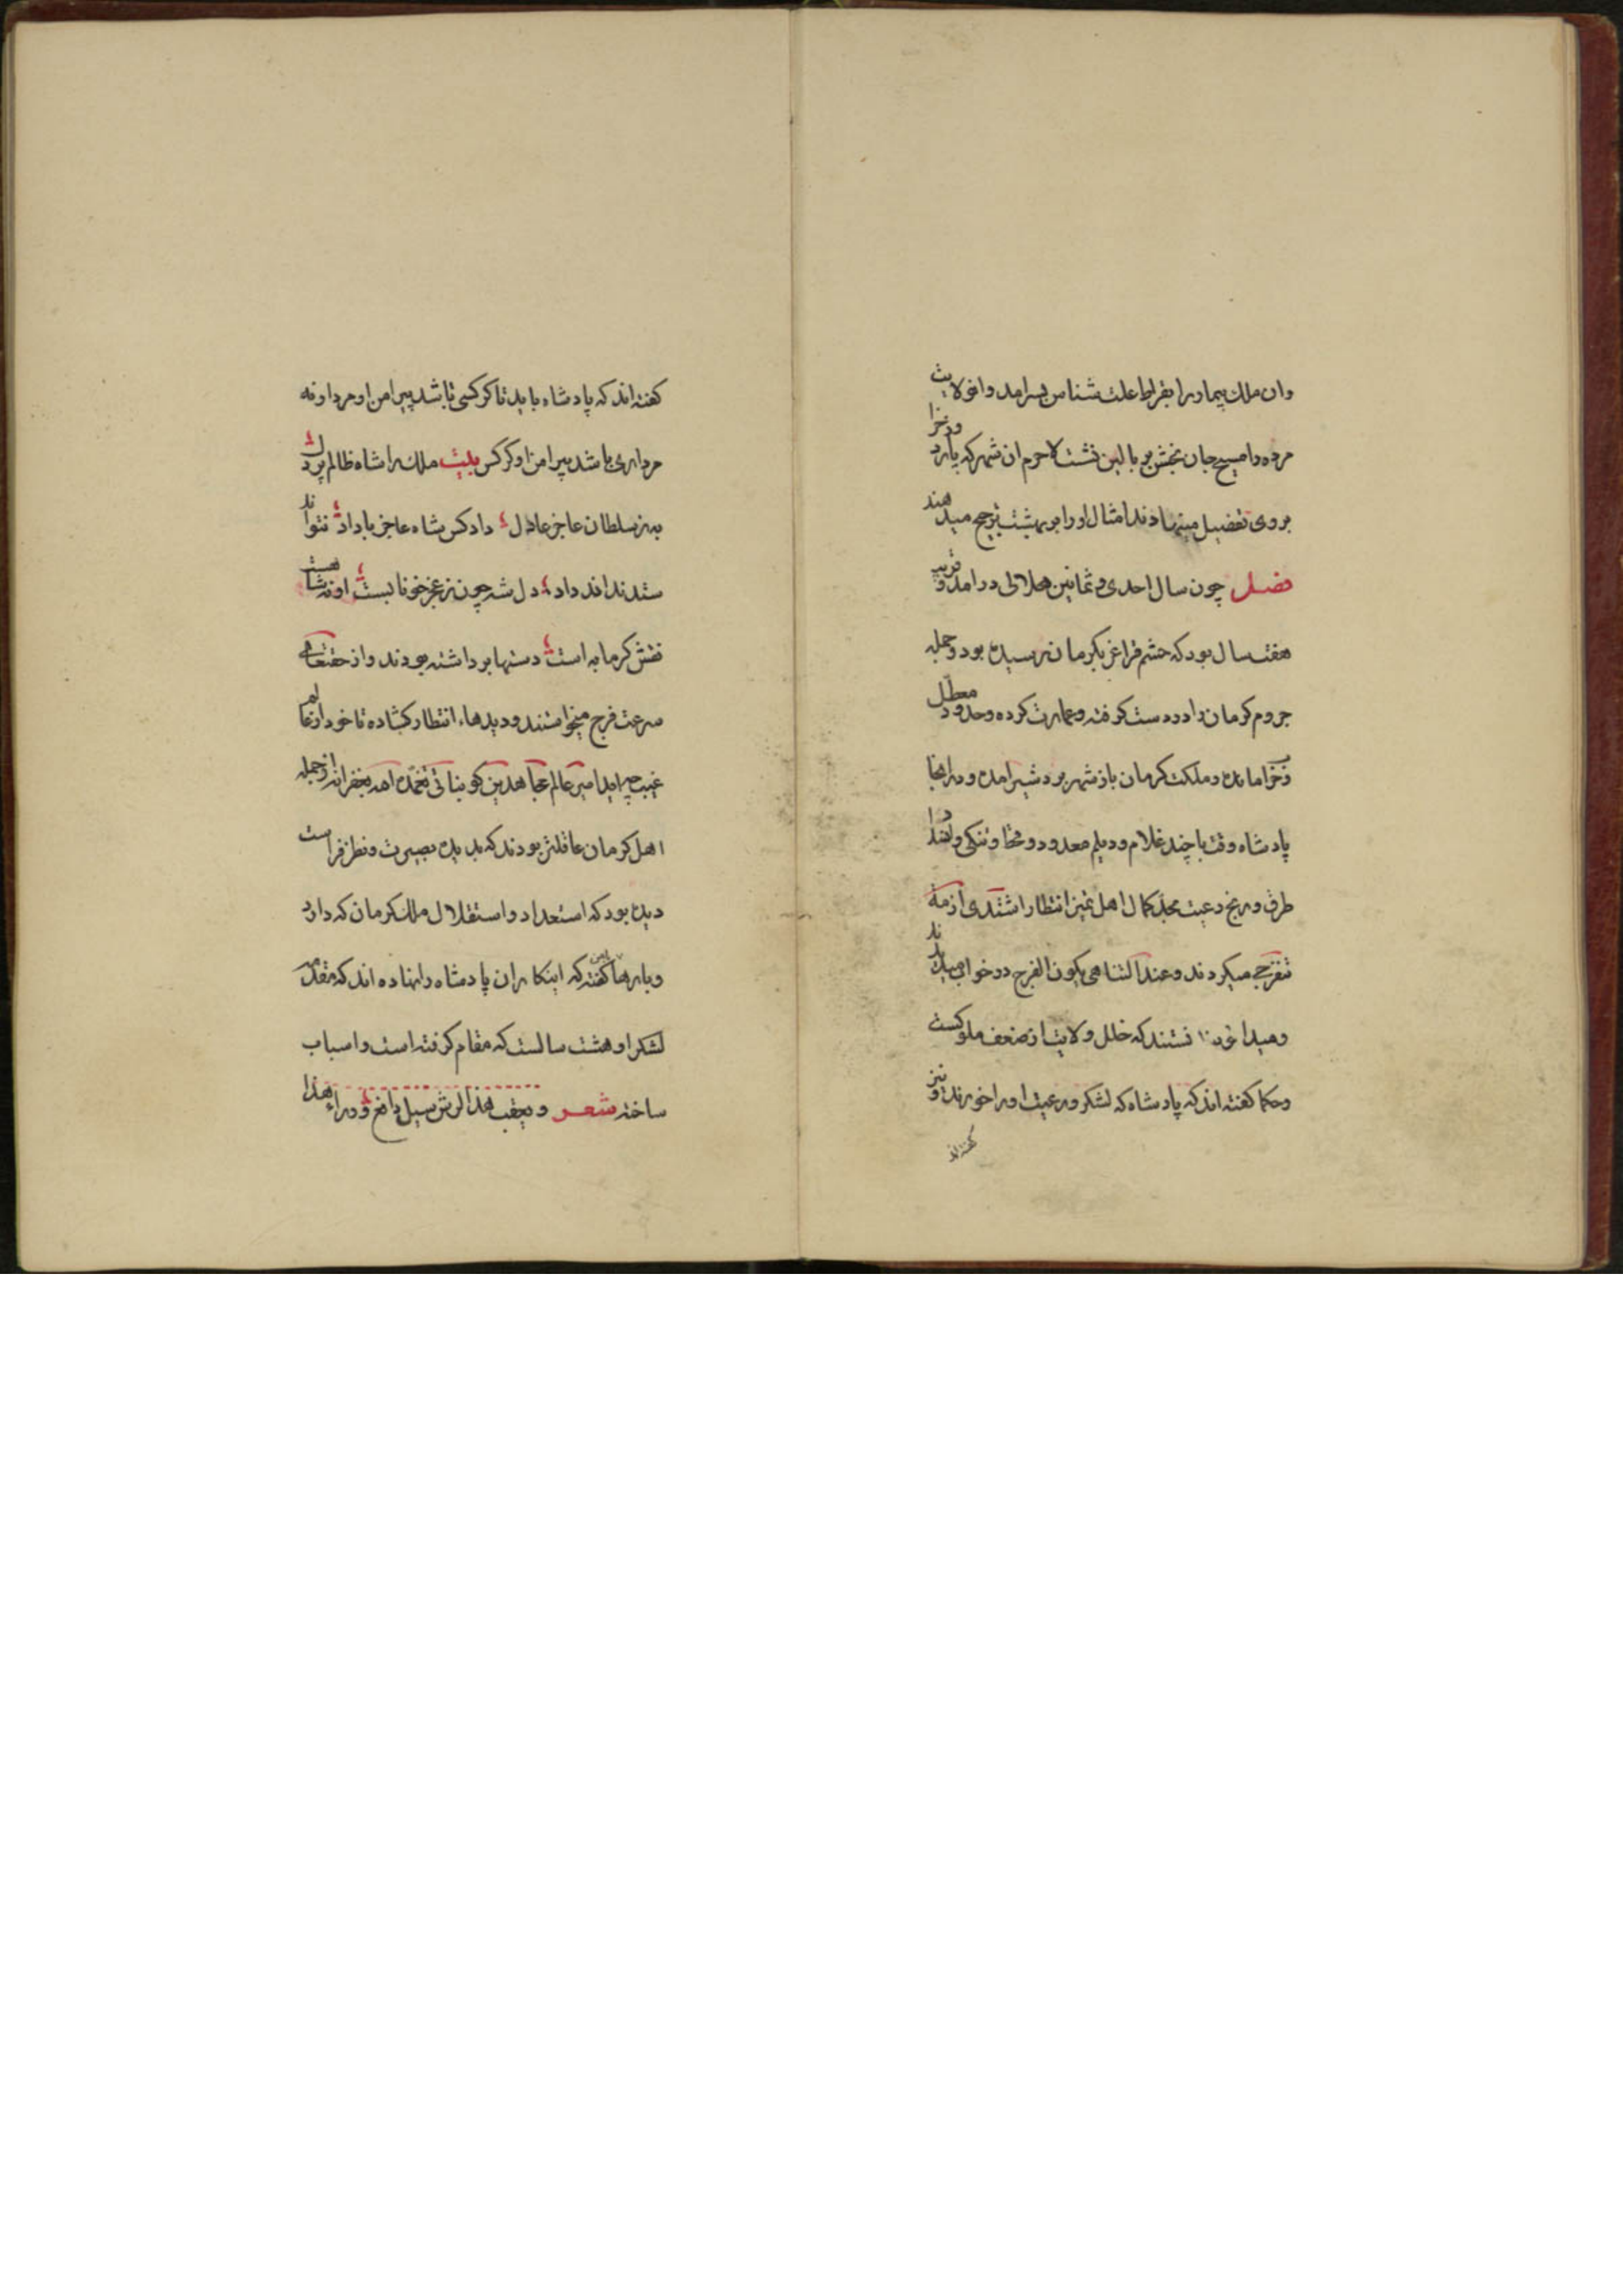 وان ملك بیمار را بقراط علت شناس بسر امد وان ولایت
مرده را مسیح جان بخش بر بالین نشست لاجرم ان شهر که بارد وزخرا
بروی تفضیل مینهادند امثال او را بر بهشت ترجیح میدهند
فصل چون سال احدی و ثمانین هلالی در امد و قریب
هفت سال بود که حشم غز بکرمان رسیده بود و جمله
جروم کرمان داد و دست کرفته و عمارت کرده و حدود معطل
وخراب مانده و مملکت کرمان باز شهر بردشیر امده و در انجا
پادشاه وقت با چند غلام و دیلم معدود و قحط و تنکی
طرف و رنج رعیت بحد کمال اهل تمیز انتظار اشتدی ازمة
تنفرجی میکردند وعند التناهی یکون الفرج در خواب میدیدند
ومیدانستند که خلل ولایت از ضعف ملوکست
وحکما کفته اند که پادشاه که لشکر و رعیت او را خورند و نیز
کفته اند
کفته اند که پادشاه باید تا کرکسی باشد پیرامن او مردار و نه
مرداری باشد پیرامن او کرکس بیت ملک را شاه ظالم پردل
به ز سلطان عاجز عادل دادکس شاه عاجز با داد نتواند
ستدند اند داد دل شه چون ز عجز خونابست او نه شاهست
نقش کرمابه است دستها برداشته بودند و از حق تعالی
سرعت فرج میخواستند و دیدهاء انتظار کشاده تا خود از عالم
غیب چه اید امیر عالم مجاهد بن کوبنانی تغمده الله بغفرانه از جمله
اهل کرمان عاقلتر بودند که بدیده بصیرت و نظر فراست
دیده بود که استعداد و استقلال ملک کرمان که دارد
وبارها کفته که اینکار ان پادشاه را نهاده اند که مقدم
لشکر او هشت سالست که مقام کرفته است و اسباب
ساخته شعر ویعقب هذا الرش سیل دافع وراء هذا